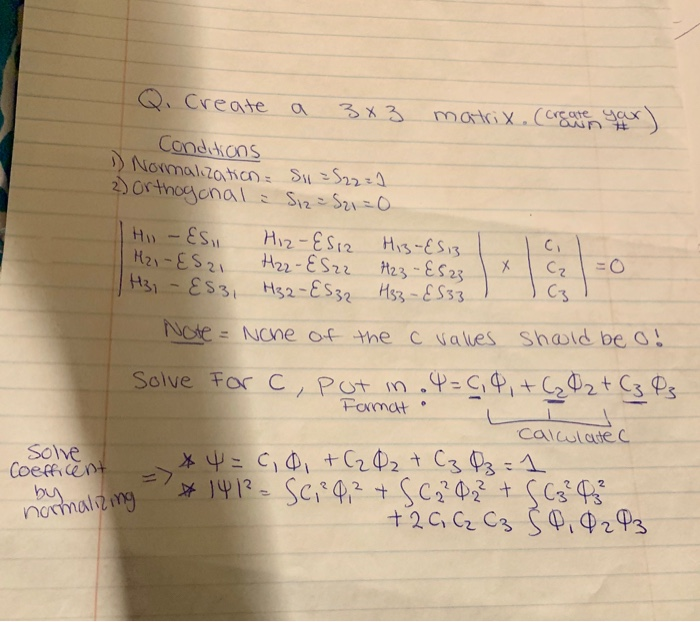 Q. Create a 3x3 matrix. (create your own #)
Conditions
1) Normalization = S11 = S22 = 1
2) Orthogonal = S12 = S21 = 0
| H11 - ES11 H12 - ES12 H13 - ES13 | | C1 |
| H21 - ES21 H22 - ES22 H23 - ES23 | x | C2 | = 0
| H31 - ES31 H32 - ES32 H33 - ES33 | | C3 |
Note = None of the C values should be 0!
Solve For C, Put in Format : Ψ = C1Φ1 + C2Φ2 + C3Φ3
Calculate C
Solve Coefficent by normalizing =>
* Ψ = C1Φ1 + C2Φ2 + C3Φ3 = 1
* |Ψ|² = ∫C1²Φ1² + ∫C2²Φ2² + ∫C3²Φ3²
+ 2C1C2C3 ∫Φ1Φ2Φ3